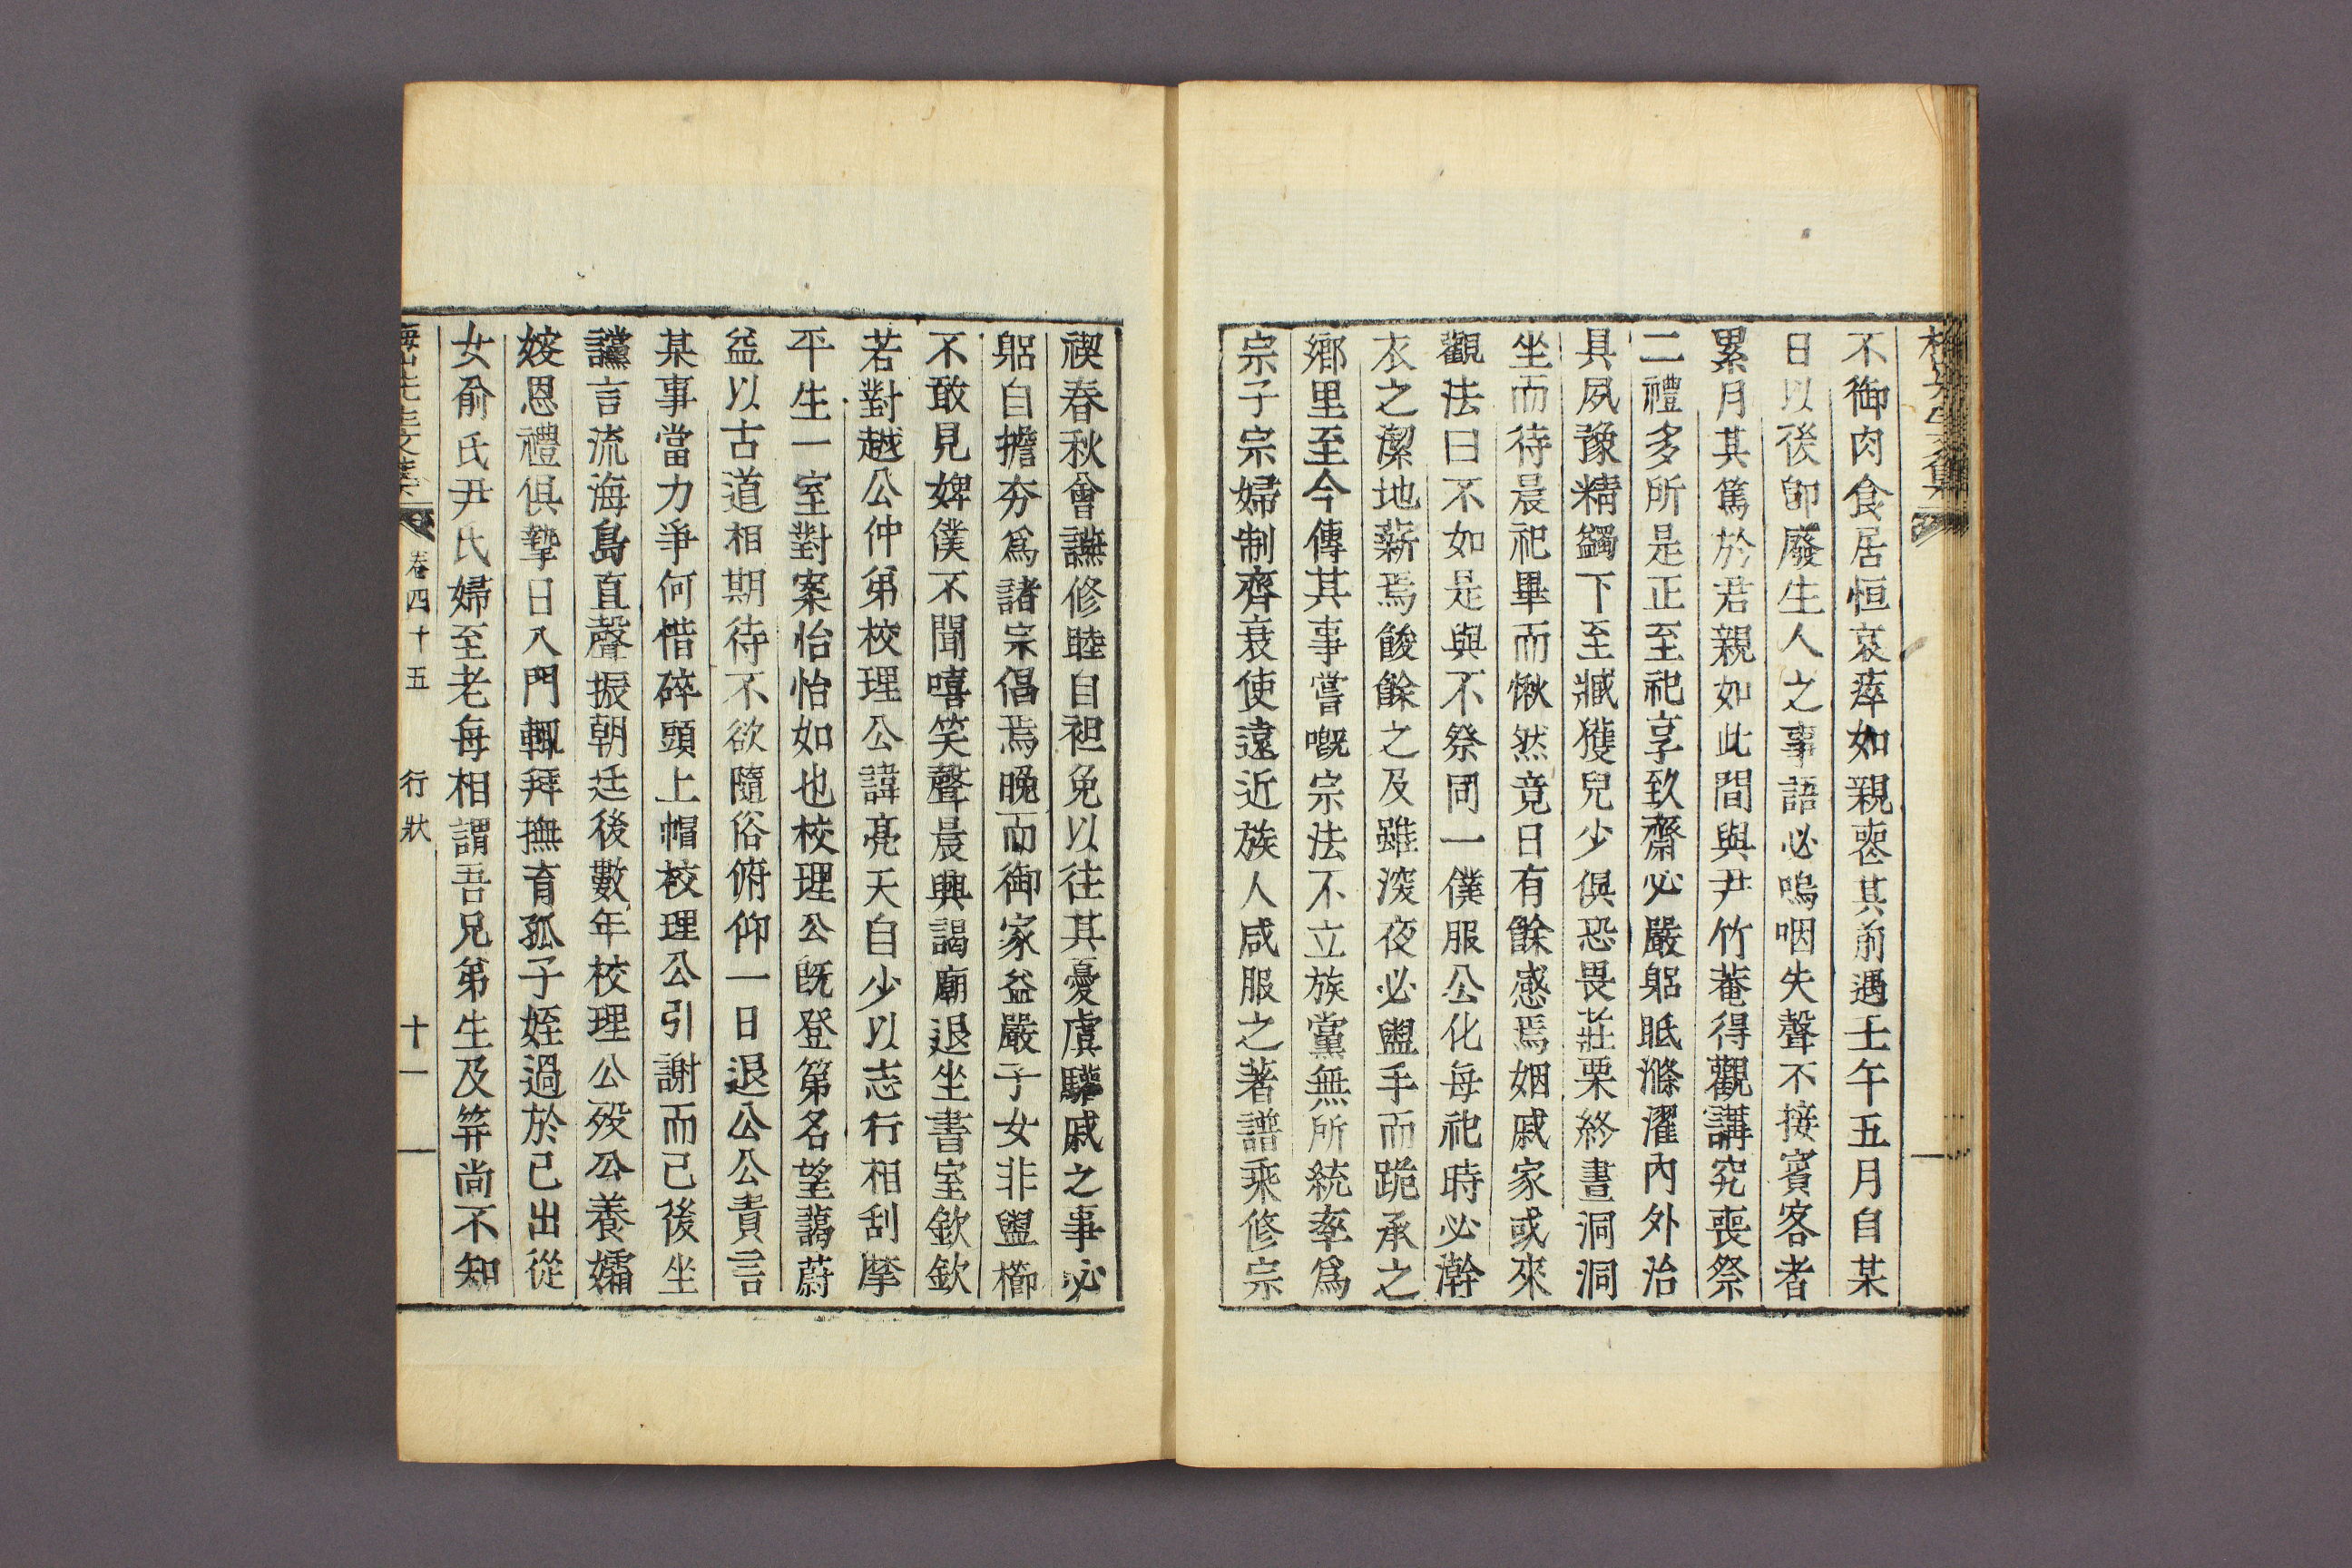 不御肉食居恒哀瘁如親喪其前遇壬午五月自某
日以後卽廢生人之事語必嗚咽失聲不接賓客者
累月其篤於君親如此間與尹竹菴得觀講究喪祭
二禮多所是正至祀享致齋必嚴躳眡滌濯內外治
具夙豫精蠲下至臧獲兒少俱恐畏莊栗終晝洞洞
坐而待晨祀畢而愀然竟日有餘慼焉姻戚家或來
觀法曰不如是與不祭同一僕服公化每祀時必澣
衣之潔地薪焉餕餘之及雖深夜必盥手而跪承之
鄕里至今傳其事嘗嘅宗法不立族黨無所統率爲
宗子宗婦制齊衰使遠近族人咸服之著譜乘修宗
禊春秋會讌修睦自袒免以往其憂虞驩戚之事必
躳自擔夯爲諸宗倡焉晚而御家益嚴子女非盥櫛
不敢見婢僕不聞嘻笑聲晨興謁廟退坐書室欽欽
若對越公仲弟校理公諱亮天自少以志行相刮摩
平生一室對案怡怡如也校理公旣登第名望藹蔚
益以古道相期待不欲隨俗俯仰一日退公公責言
某事當力爭何惜碎頭上帽校理公引謝而已後坐
讜言流海島直聲振朝廷後數年校理公歿公養孀
嫂恩禮俱摯日入門輒拜撫育孤子姪過於己出從
女兪氏尹氏婦至老每相謂吾兄弟生及筓尚不知
卷四十五 行狀 十一